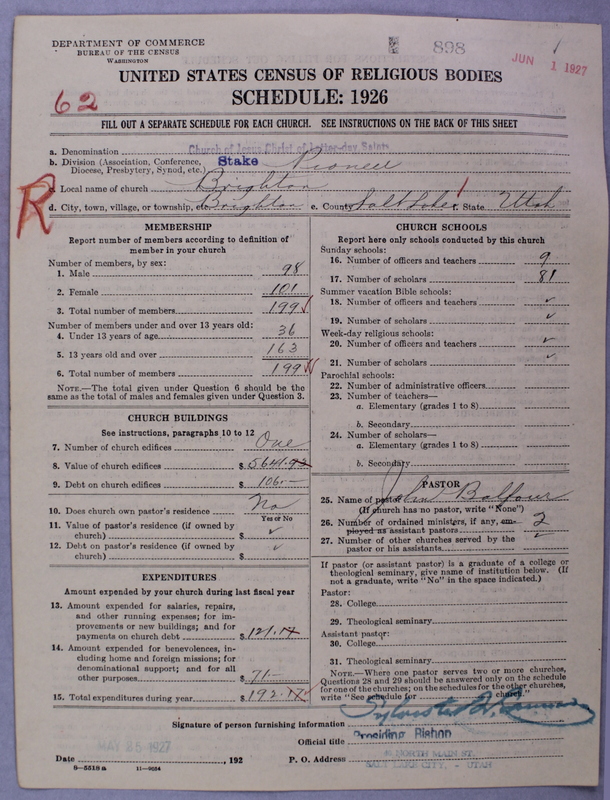 DEPARTMENT OF COMMERCE
BUREAU OF THE CENSUS
WASHINGTON
898
JUN 1 1927
UNITED STATES CENSUS OF RELIGIOUS BODIES
62
SCHEDULE: 1926
FILL OUT A SEPARATE SCHEDULE FOR EACH CHURCH. SEE INSTRUCTIONS ON THE BACK OF THIS SHEET
a. Denomination Church of Jesus Christ of Latter-day Saints
b. Division (Association, Conference, Diocese, Presbytery, Synod, etc.) Stake Pioneer
R
c. Local name of church Brighton
d. City, town, village, or township, etc. Brighton e. County Salt Lake State Utah
MEMBERSHIP
Report number of members according to definition of
member in your church
Number of members, by sex:
1. Male 98
2. Female 101
3. Total number of members 199
Number of members under and over 13 years old:
4. Under 13 years of age 36
5. 13 years old and over 163
6. Total number of members 199
NOTE.—The total given under Question 6 should be the
same as the total of males and females given under Question 3.
CHURCH BUILDINGS
See instructions, paragraphs 10 to 12
7. Number of church edifices One
8. Value of church edifices $ 5641.93
9. Debt on church edifices $ 106.—
10. Does church own pastor's residence? No
Yes or No
11. Value of pastor's residence (if owned by
church) $ ✓
12. Debt on pastor's residence (if owned by
church) $ ✓
EXPENDITURES
Amount expended by church during last fiscal year
13. Amount expended for salaries, repairs,
and other running expenses; for im-
provements or new buildings; and for
payments on church debt $ 121.17
14. Amount expended for benevolences, in-
cluding home and foreign missions; for
denominational support; and for all
other purposes $ 71.—
15. Total expenditures during year $ 192.17
CHURCH SCHOOLS
Report here only schools conducted by this church
Sunday schools:
16. Number of officers and teachers 9
17. Number of scholars 81
Summer vacation Bible schools:
18. Number of officers and teachers ✓
19. Number of scholars ✓
Week-day religious schools:
20. Number of officers and teachers ✓
21. Number of scholars ✓
Parochial schools:
22. Number of administrative officers
23. Number of teachers—
a. Elementary (grades 1 to 8)
b. Secondary
24. Number of scholars—
a. Elementary (grades 1 to 8)
b. Secondary
PASTOR
25. Name of pastor John Balfour
(If church has no pastor, write "None")
26. Number of ordained ministers, if any, em-
ployed as assistant pastors 2
27. Number of other churches served by the
pastor or his assistants ✓
If pastor (or assistant pastor) is a graduate of a college or
theological seminary, give name of institution below. (If
not a graduate, write "No" in the space indicated.)
Pastor:
28. College
29. Theological seminary
Assistant pastor:
30. College
31. Theological seminary
NOTE.—Where one pastor serves two or more churches,
Questions 28 and 29 should be answered only on the schedule
for one of the churches; on the schedules for the other churches,
write "See schedule for church."
Signature of person furnishing information Sylvester Q. Cannon
Official title Presiding Bishop
MAY 25 1927
Date , 192 P. O. Address NORTH MAIN ST.
SALT LAKE CITY, - UTAH
8—5518 a 11—9034